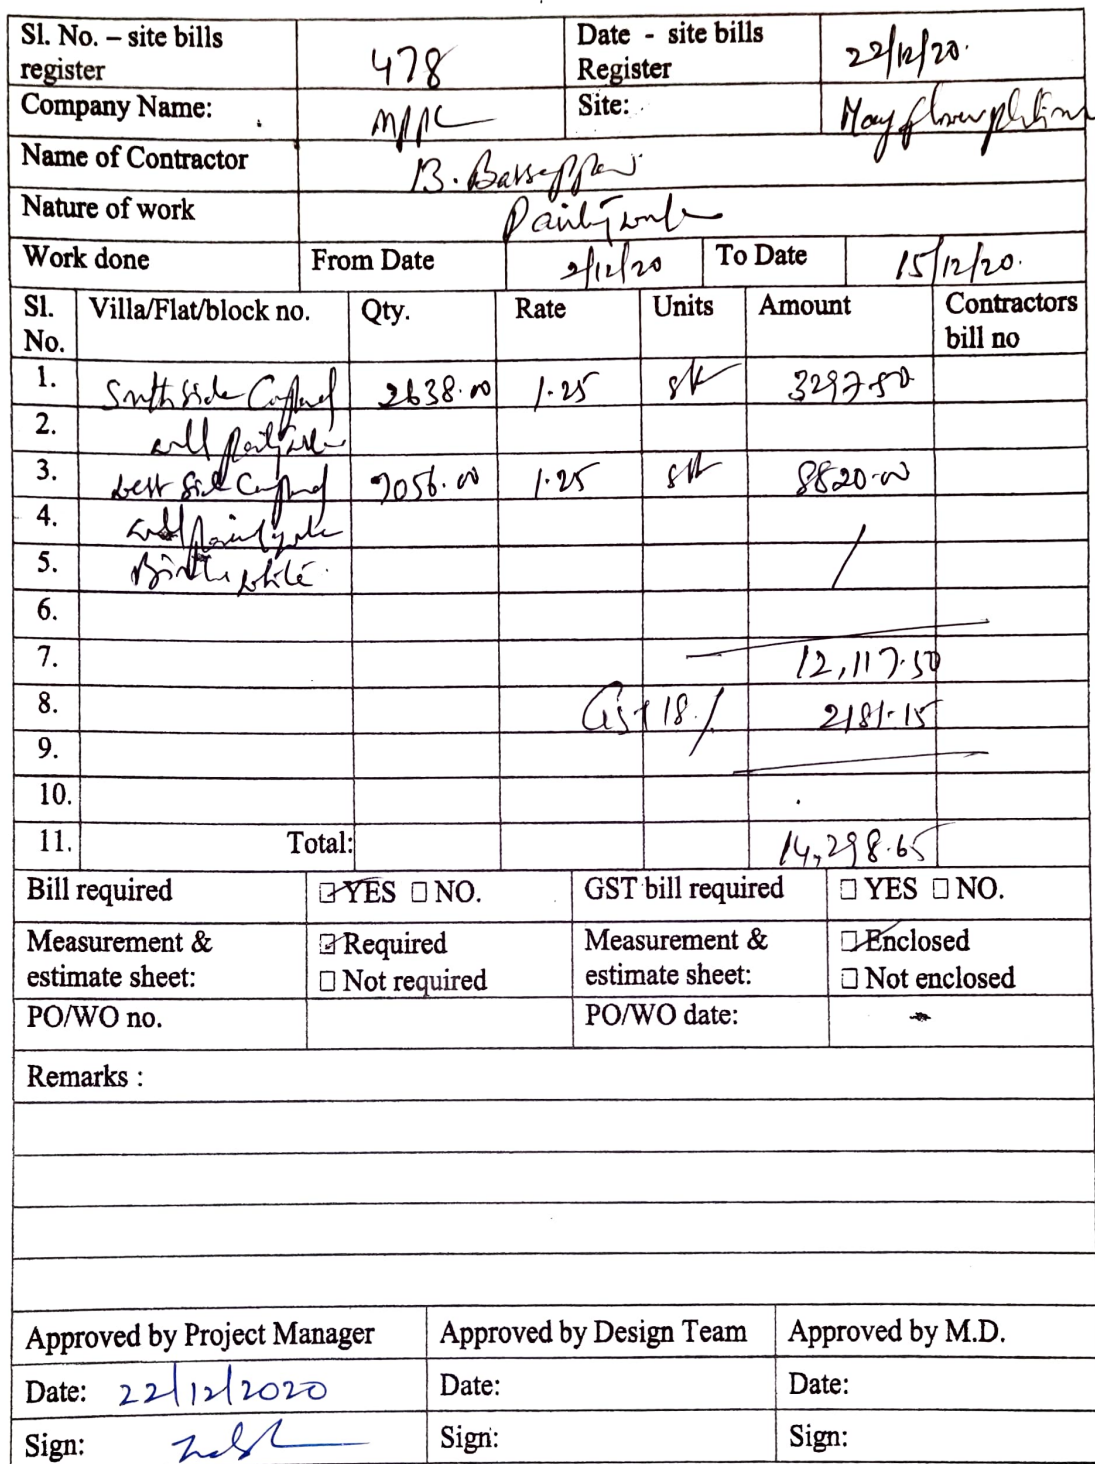 Sl. No. – site bills register 478 Date - site bills Register 22/12/20.
Company Name: MPPL Site: May flower platinum
Name of Contractor B. Basseppa
Nature of work Painting work
Work done From Date 2/12/20 To Date 15/12/20.
Sl. No. Villa/Flat/block no. Qty. Rate Units Amount Contractors bill no
1. South side Compound 2638.00 1.25 sft 3297.50
2. wall painting work
3. west side Compound 7056.00 1.25 sft 8820.00
4. wall painting work
5. Birla white.
6.
7. 12,117.50
8. Gst 18% 2181.15
9.
10.
11. Total: 14,298.65
Bill required ☑ YES ☐ NO. GST bill required ☐ YES ☐ NO.
Measurement & estimate sheet: ☑ Required ☐ Not required Measurement & estimate sheet: ☑ Enclosed ☐ Not enclosed
PO/WO no. PO/WO date:
Remarks :
Approved by Project Manager Approved by Design Team Approved by M.D.
Date: 22/12/2020 Date: Date:
Sign: Sign: Sign: